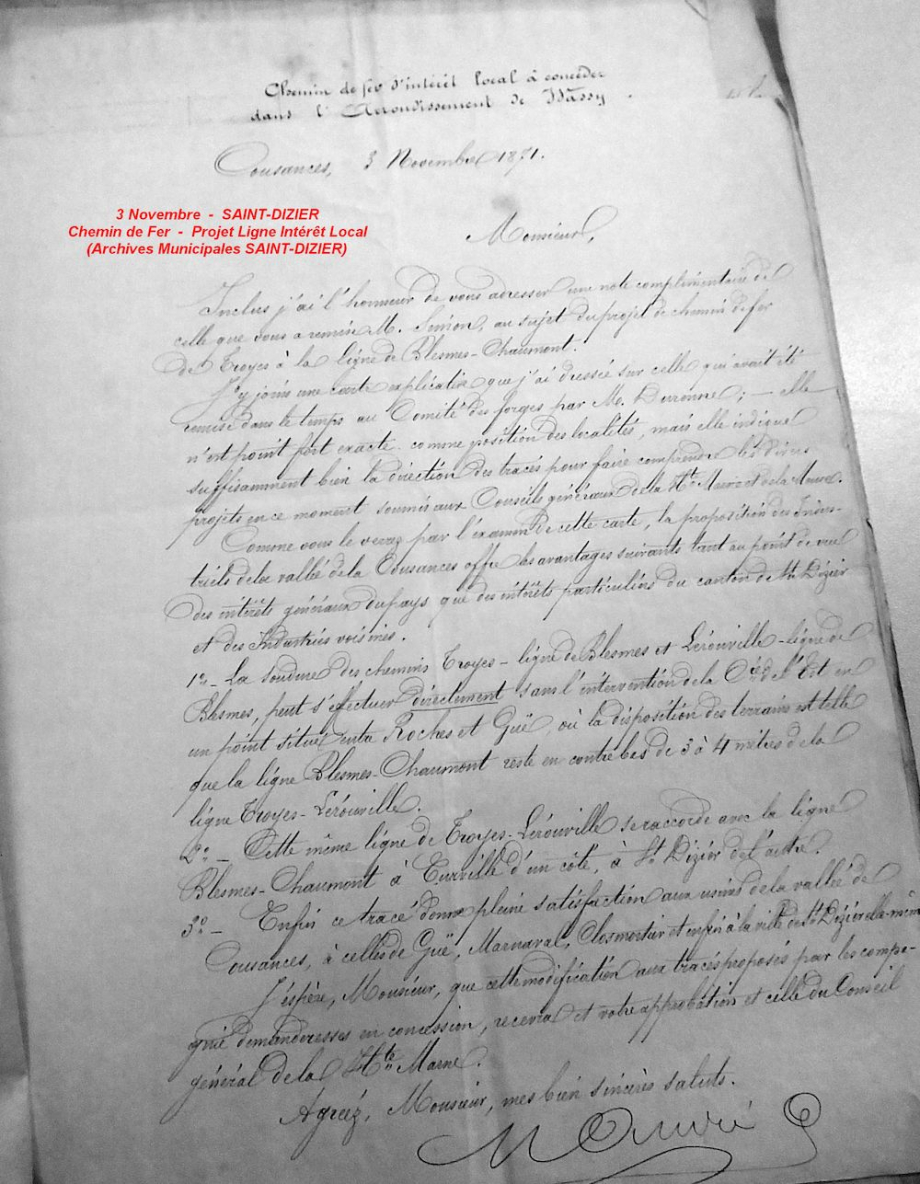 Chemin de fer d'intérêt local à concéder
dans l'Arrondissement de Wassy.
Cousances, 3 Novembre 1871.
3 Novembre - SAINT-DIZIER
Chemin de Fer - Projet Ligne Intérêt Local
(Archives Municipales SAINT-DIZIER)
Monsieur,
Inclus j'ai l'honneur de vous adresser une note complémentaire de
celle que vous a remise M. Simon, au sujet du projet de chemin de fer
de Troyes à la ligne de Blesmes-Chaumont.
J'y joins une carte explicative que j'ai dressée sur celle qui avait été
remise dans le temps au Comité des forges par M. Durenne; — elle
n'est point fort exacte comme position des localités, mais elle indique
suffisamment bien la direction des tracés pour faire comprendre les divers
projets en ce moment soumis aux Conseils généraux de la Hte Marne et de la Meuse.
Comme vous le verrez par l'examen de cette carte, la proposition des Indus-
triels de la vallée de la Cousances offre les avantages suivants tant au point de vue
des intérêts généraux du pays que des intérêts particuliers du canton de St Dizier
et des Industries voisines.
1º - La soudure des chemins Troyes - ligne de Blesmes et Lérouville - ligne de
Blesmes, peut s'effectuer directement sans l'intervention de la Cie de l'Est en
un point situé entre Roches et Guë, où la disposition des terrains est telle
que la ligne Blesmes-Chaumont reste en contrebas de 3 à 4 mètres de la
ligne Troyes-Lérouville.
2º - Cette même ligne de Troyes-Lérouville se raccorde avec la ligne
Blesmes-Chaumont à Eurville d'un côté, à St Dizier de l'autre.
3º - Enfin ce tracé donne pleine satisfaction aux usines de la vallée de
Cousances, à celles de Guë, Marnaval, Closmortier et enfin à la ville de St Dizier elle-même
J'espère, Monsieur, que cette modification aux tracés proposés par les compa-
gnies demanderesses en concession, recevra et votre approbation et celle du Conseil
général de la Hte Marne.
Agréez, Monsieur, mes bien sincères saluts.